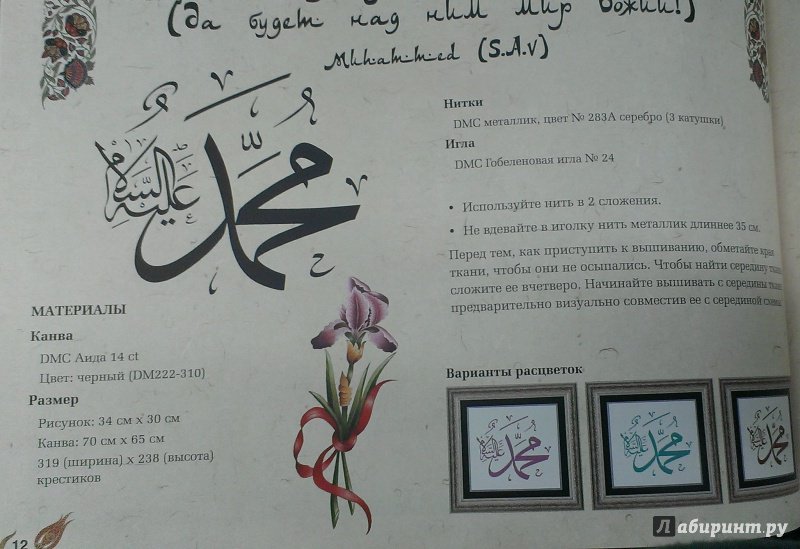 (да будет над ним мир божий!)
Muhammed (S.A.v)
محمد
عليه السلام
МАТЕРИАЛЫ
Канва
DMC Аида 14 ct
Цвет: черный (DM222-310)
Размер
Рисунок: 34 см x 30 см
Канва: 70 см x 65 см
319 (ширина) x 238 (высота)
крестиков
12
Нитки
DMC металлик, цвет № 283A серебро (3 катушки)
Игла
DMC Гобеленовая игла № 24
• Используйте нить в 2 сложения.
• Не вдевайте в иголку нить металлик длиннее 35 см.
Перед тем, как приступить к вышиванию, обметайте края
ткани, чтобы они не осыпались. Чтобы найти середину ткани
сложите ее вчетверо. Начинайте вышивать с середины ткани
предварительно визуально совместив ее с серединой схемы
Варианты расцветок
محمد عليه السلام
محمد عليه السلام
محمد عليه السلام
Лабиринт.ру